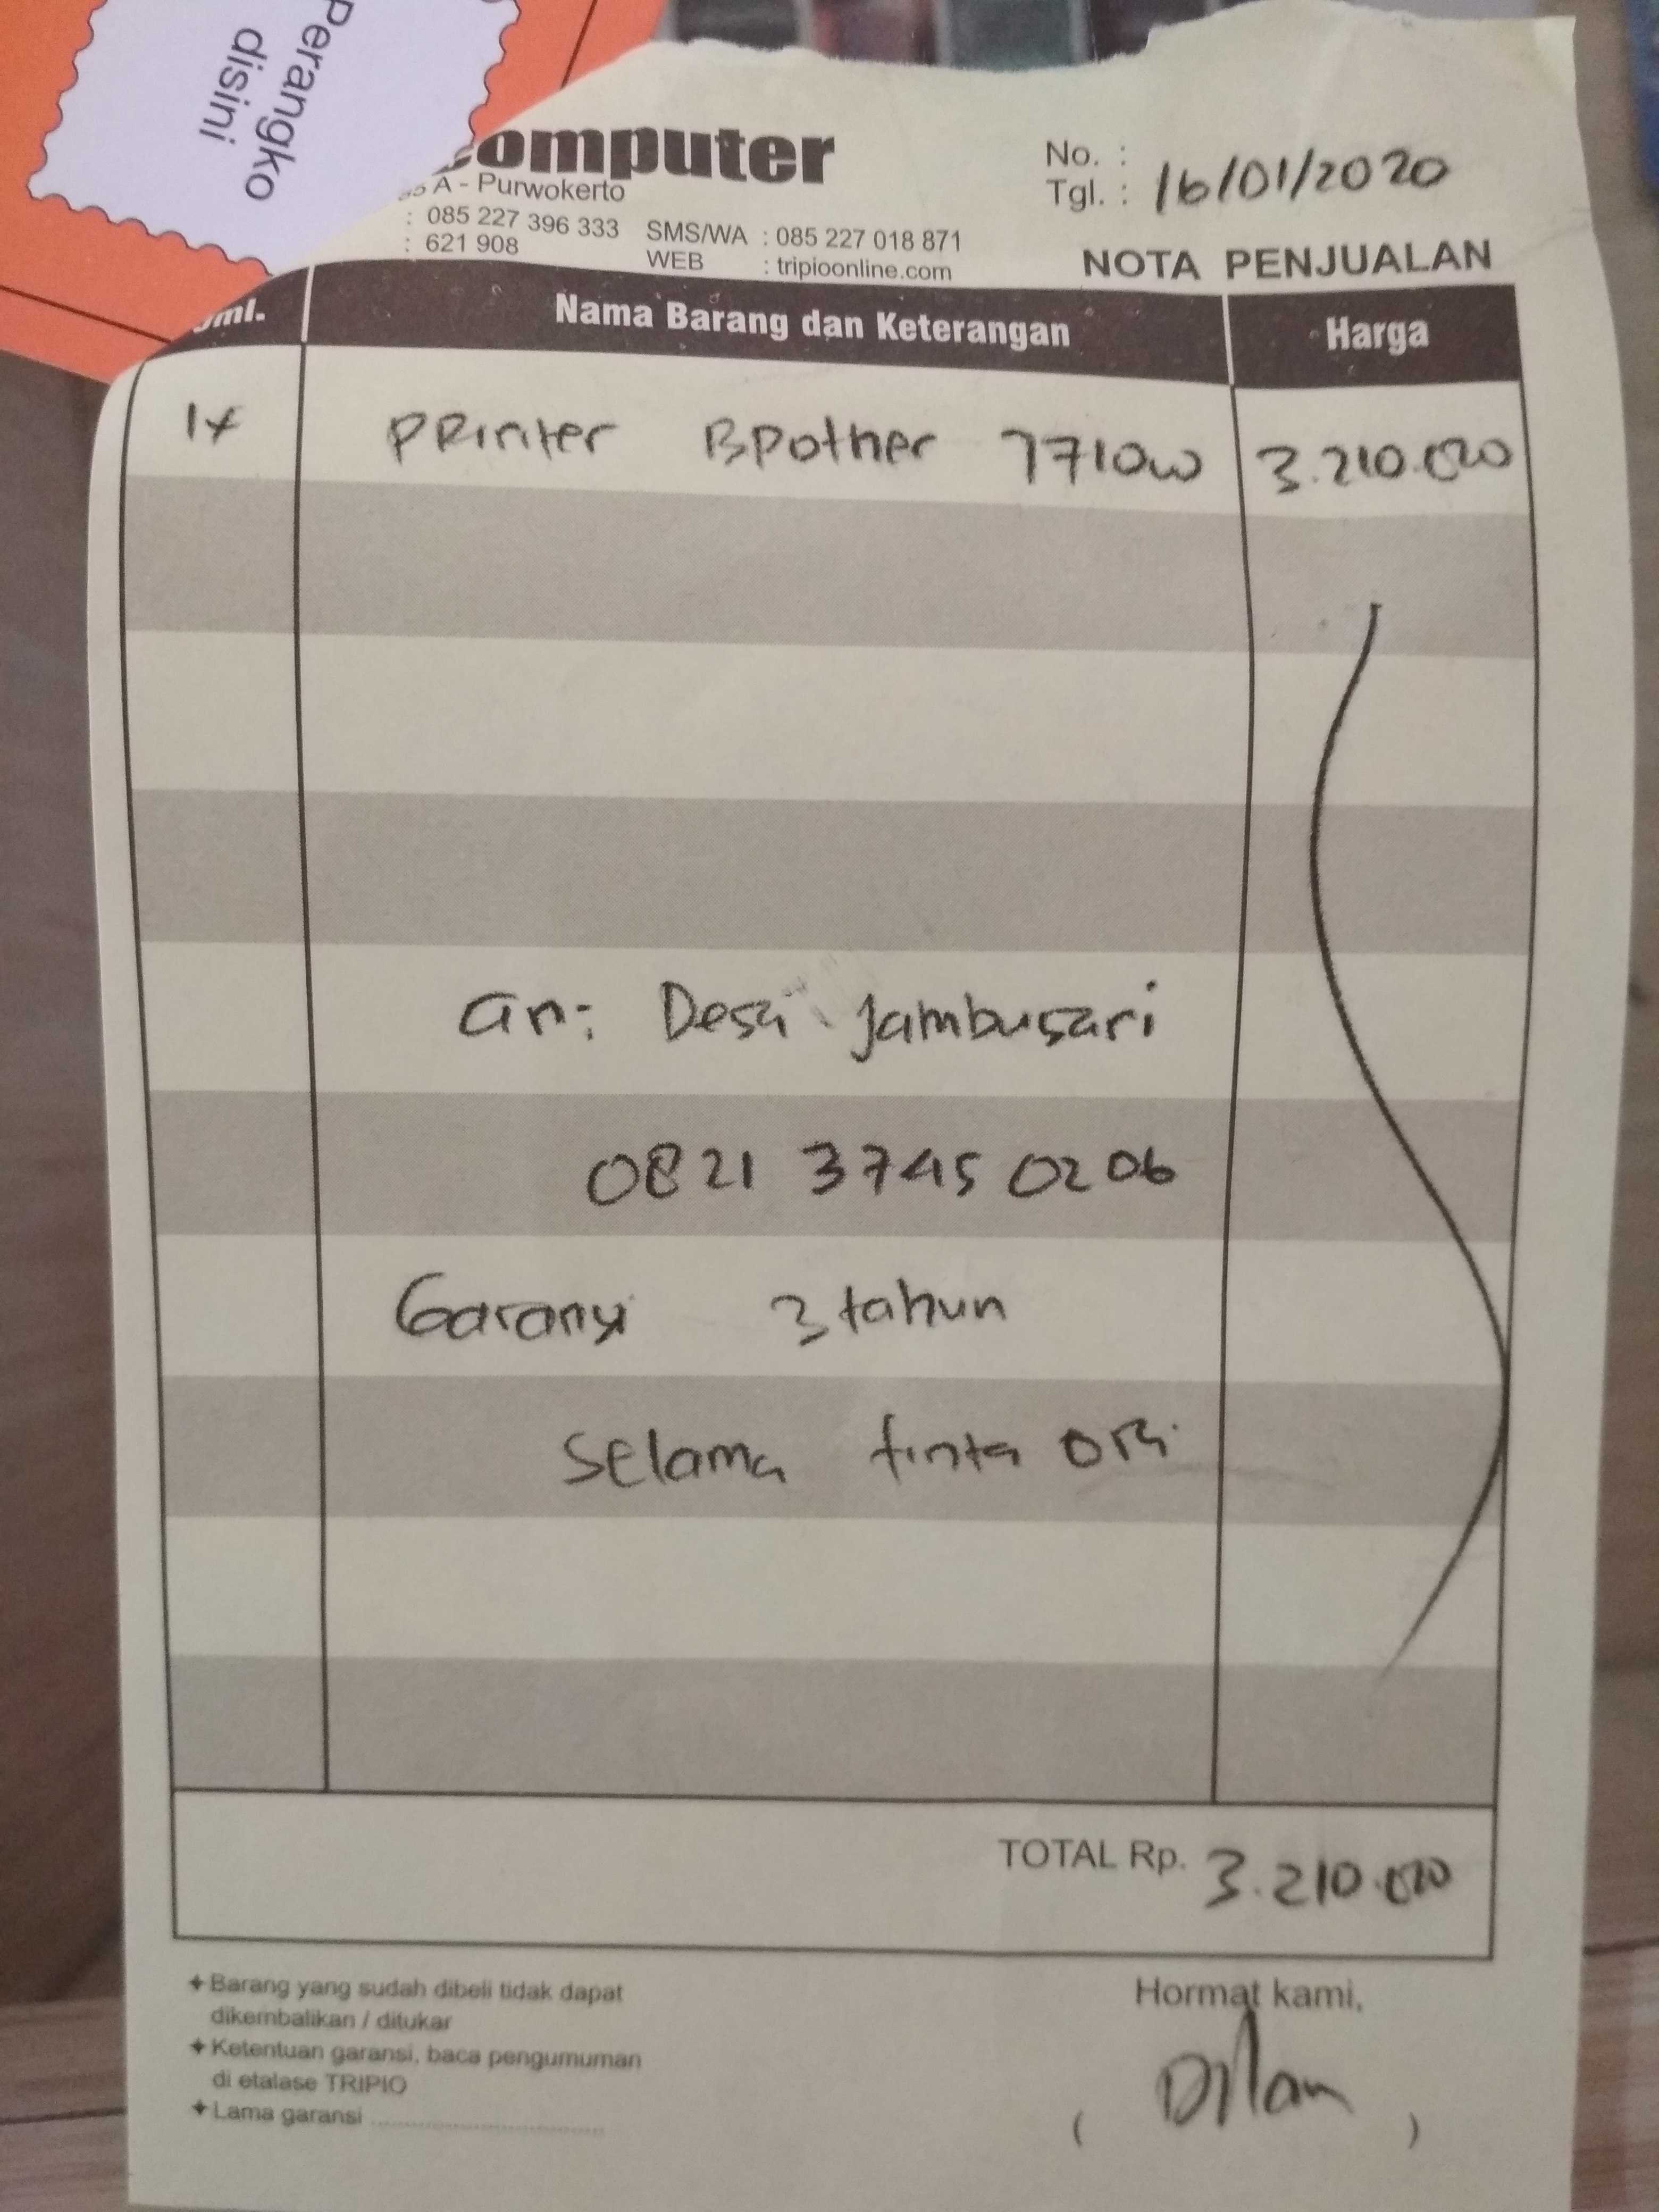 Perangko
disini
omputer
A - Purwokerto
: 085 227 396 333
: 621 908
SMS/WA : 085 227 018 871
WEB : tripioonline.com
No. :
Tgl. : 16/01/2020
NOTA PENJUALAN
ml. Nama Barang dan Keterangan Harga
1x Printer Brother 7710w 3.210.000
an: Desa Jambusari
0821 3745 0206
Garansi 3 tahun
Selama tinta ori
TOTAL Rp. 3.210.000
✦ Barang yang sudah dibeli tidak dapat
dikembalikan / ditukar
✦ Ketentuan garansi, baca pengumuman
di etalase TRIPIO
✦ Lama garansi ..............................
Hormat kami,
( Dilan )